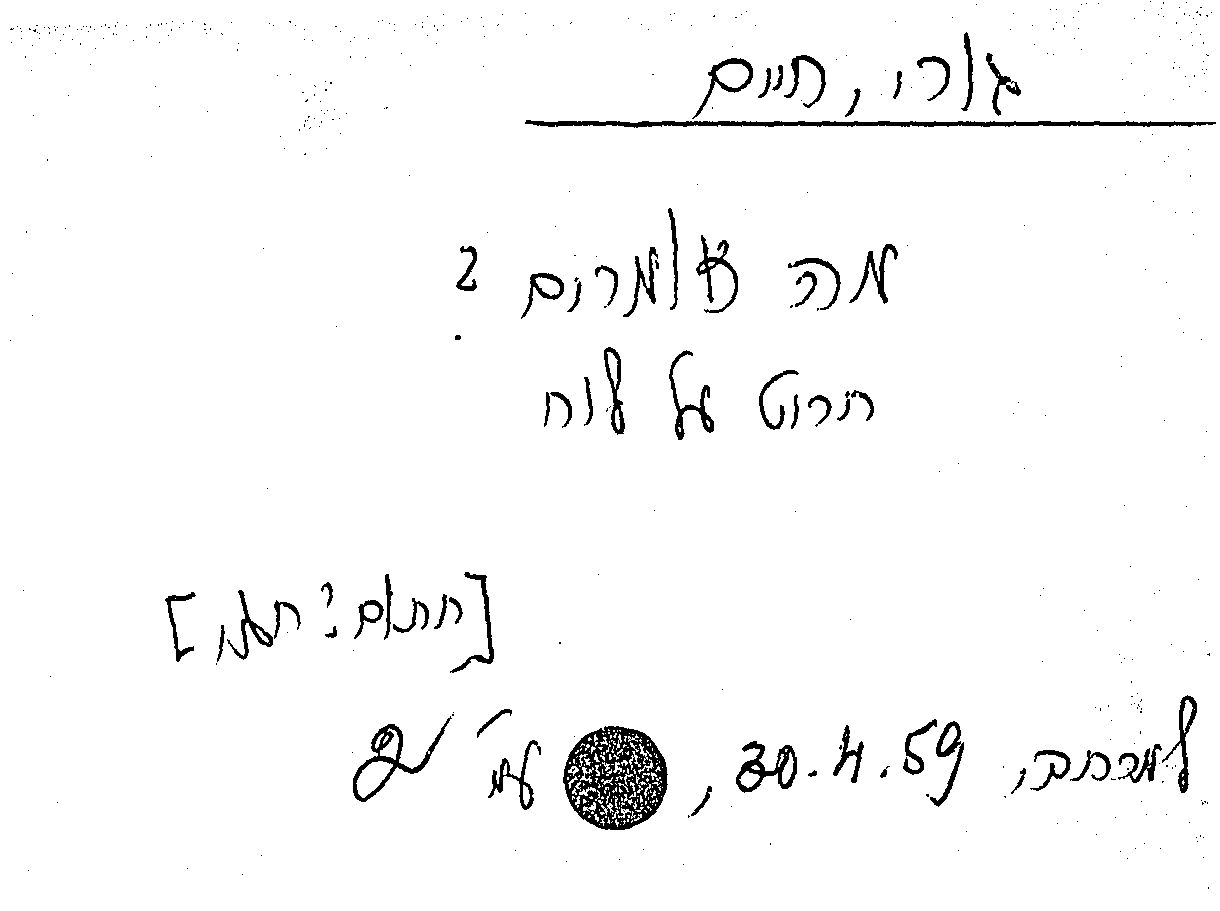 גורי, חיים
מה אומרים ?
חרוט על לוח
[חתום: חג]
למרחב, 30.4.59, עמ' 2